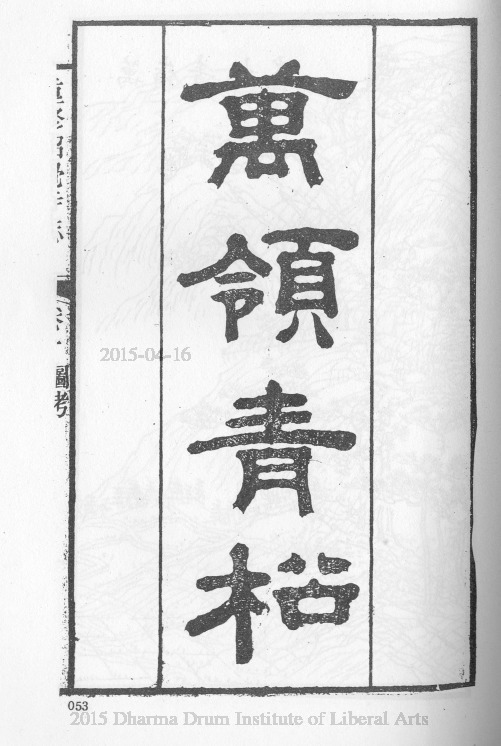 萬領青松
圖考
2015-04-16
053
2015 Dharma Drum Institute of Liberal Arts